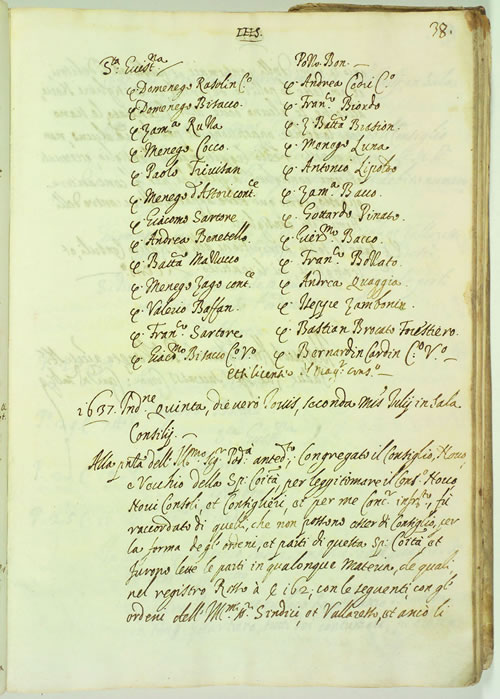 1115.
38.
S.ta Eufe.na
ꝙ Domenego Rasolin C.o
ꝙ Domenego Bisacco.
ꝙ Zam.a Rulla
ꝙ Menego Cocco.
ꝙ Paolo Trivisan
ꝙ Menego d'Astori cont.e
ꝙ Giacomo Sartore
ꝙ Andrea Benetello.
ꝙ Batt.a Mallucco
ꝙ Menego Zago cont.e
ꝙ Valerio Baffan.
ꝙ Fran.co Sartore
ꝙ Giac.mo Bisacco C.o V.o
Pollo Bon.
ꝙ Andrea Codic C.o
ꝙ Fran.co Biordo
ꝙ Z. Batt.a Brasion.
ꝙ Menego Luna
ꝙ Antonio
ꝙ Zam.a Bacco.
ꝙ Gottardo Pinato.
ꝙ Bacco.
ꝙ Fran.co Bollato
ꝙ Andrea Quaggia
ꝙ Iseppe Zambonin
ꝙ Bastian Brocato Forestiero.
ꝙ Bernardin Cardin C.o V.o
Et licent.
1637. Ind.ne Quinta, die vero Jovis, secunda Mis Julij in Sala
Consilij.
Alla p.ntia dell' Ill.mo S.r Pod.a anted.to, Congregato il Consiglio, Novo
e Vecchio della Sp. Co.ità per leggitimare il Cons.o Novo
Novi Consoli, et Consiglieri, et per me Canc.r infr.to, fu
raccordato di quelli, che non possono esser di Consiglio, per
la forma degl' ordeni, et parti di questa Sp. Co.ità, et
furono lette le parti in qualonque Materia, de quali
nel registro Rosso à c. 162, con le seguenti, con gl'
ordeni dell' Ill.mi S.ri Sindici, et Vallaresso, et anco li